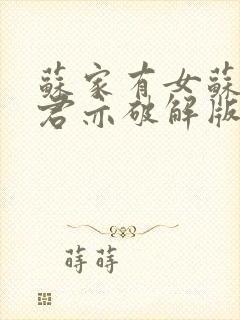 蘇家有女蘇
君亦破解版
蒔蒔